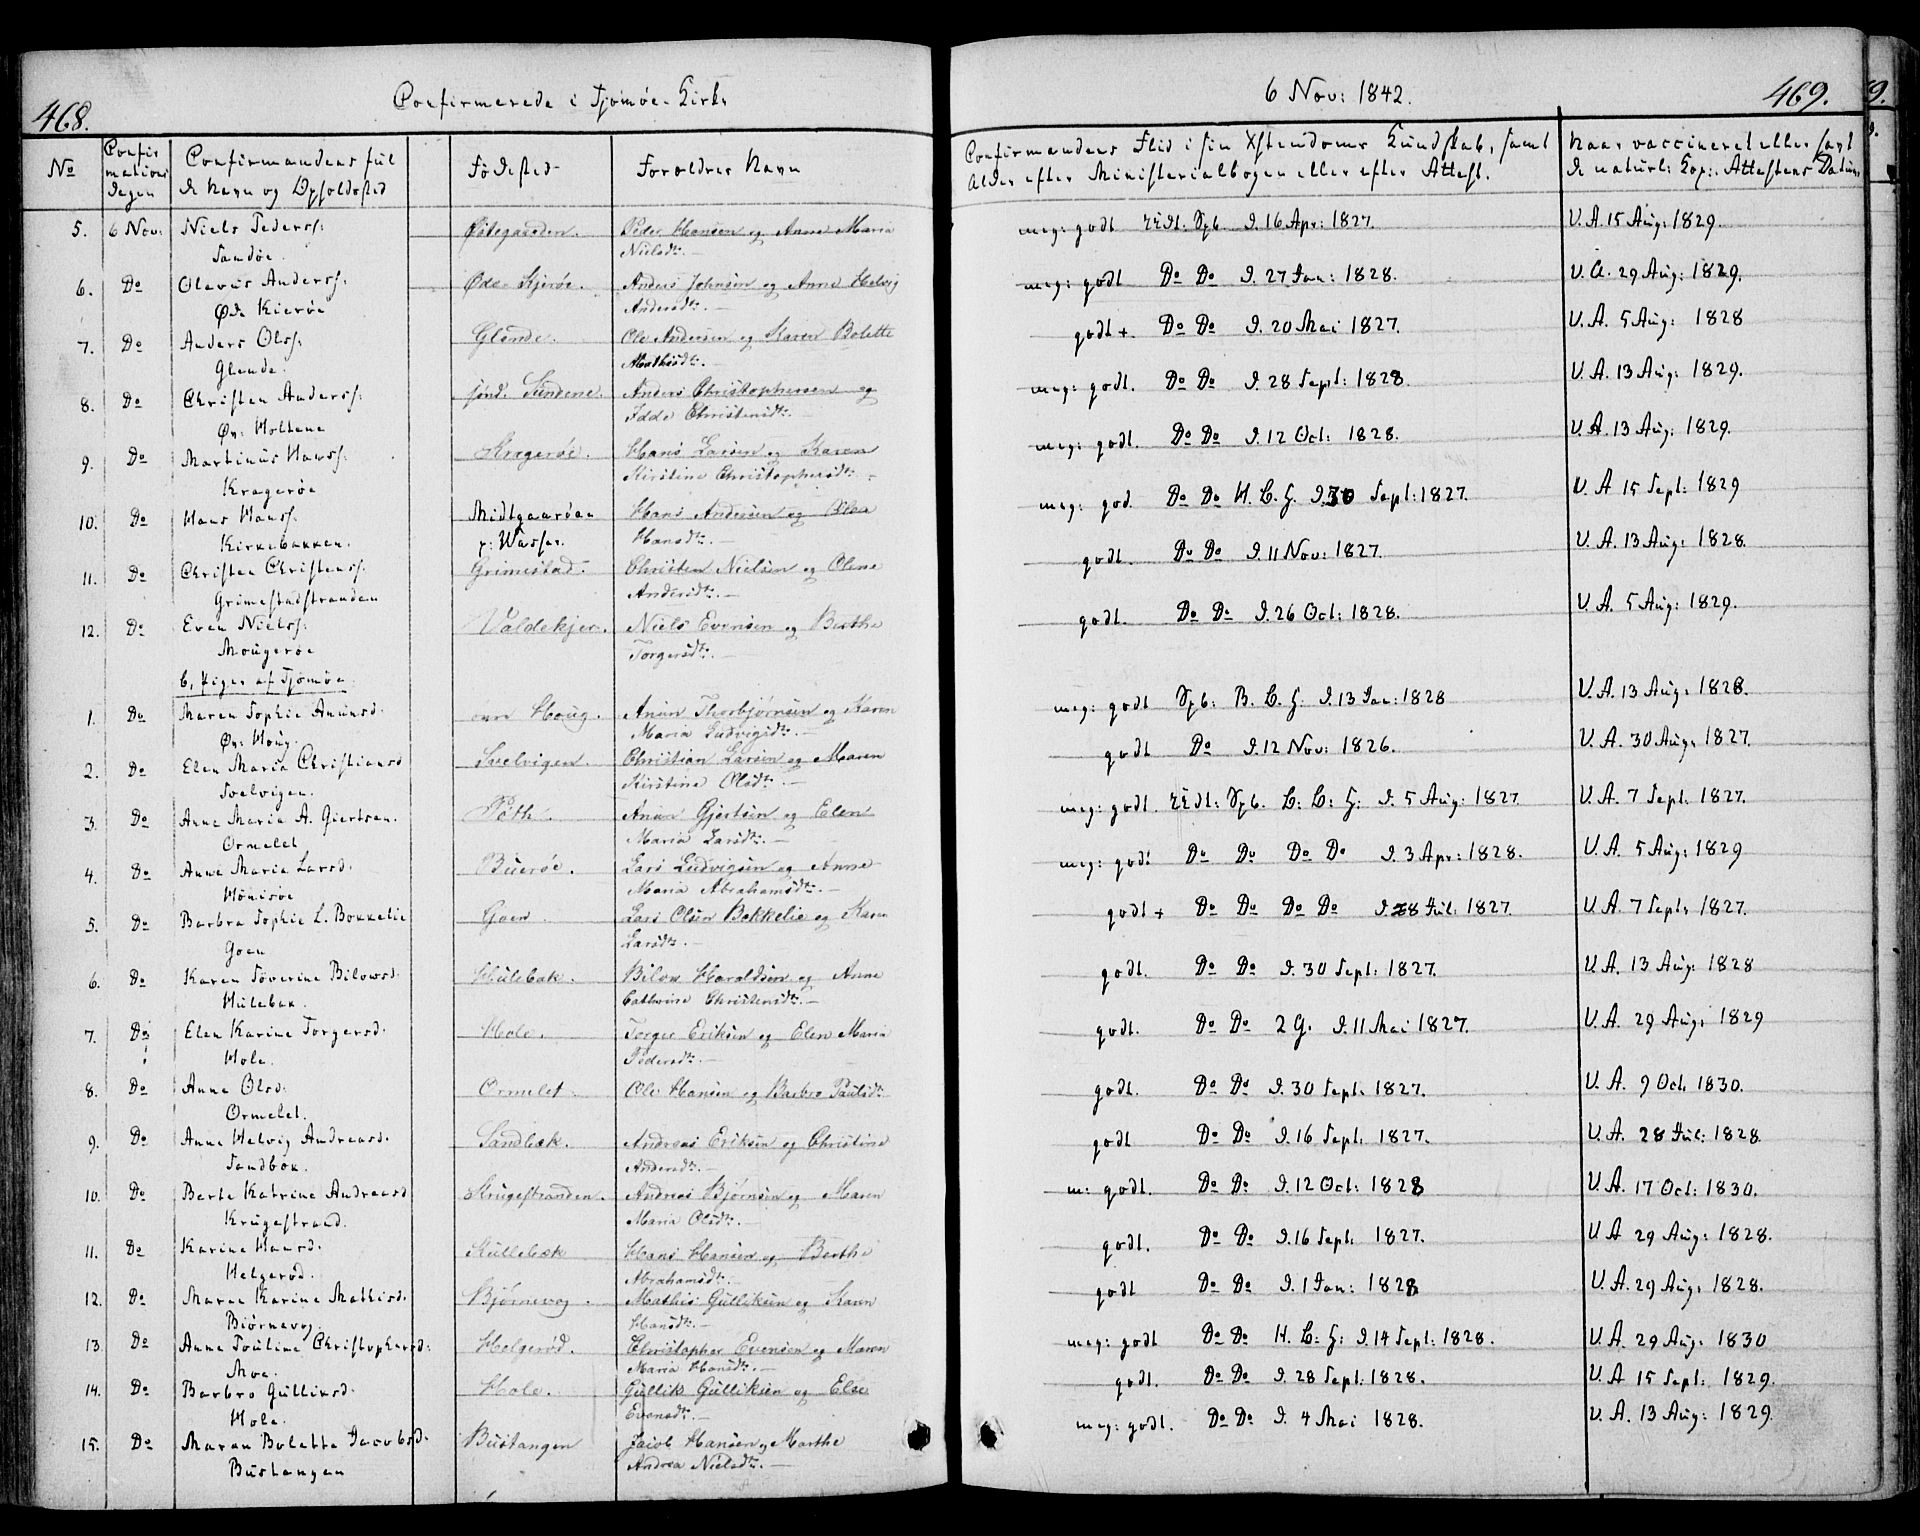 468.
Confirmerede i Tjømøe Kirke
No
Confir
mations
dagen
Confirmandens ful
de Navn og Opholdssted
Fødested
Forældres Navn
5. 6 Nov: Niels Pederss: Østegaarden. Peder Hansen og Anne Maria
Sandøe. Nielsdt:
6. Do Olavus Anderss: Øde Kjerøe. Anders Johnsen og Anne Helvig
Øde Kierøe Andersdt:
7. Do Anders Olss: Glende. Ole Andersen og Karen Bolette
Glende. Mathisdt:
8. Do Christen Anderss: sønd: Sundene. Anders Christophersen og
Øv: Holtene Idde Christensdt:
9. Do Martinus Hanss: Kragerøe. Hans Larsen og Karen
Kragerøe Kirstine Christophersdt:
10. Do Hans Hanss: Midtgaarden Hans Andersen og Olea
Kirkebakken. p: Wasser. Hansdt:
11. Do Christen Christenss: Grimestad Christen Nielsen og Olene
Grimestadstranden Andersdt:
12. Do Even Nielss: Valdekjer. Niels Evensen og Berthe
Mougerøe Torgersdt:
b, Piger af Tjømøe
1. Do Maren Sophie Anunsd. øvre Houg. Anun Thorbjørnsen og Karen
Øv: Houg. Maria Ludvigsdt:
2. Do Elen Maria Christiansd Svelvigen. Christian Larsen og Maren
Svelvigen. Kirstine Olsdt:
3. Do Anne Maria A. Giertsen. Røth. Anun Gjertsen og Elen
Ormelet Maria Larsdt:
4. Do Anne Maria Larsd. Buerøe. Lars Ludvigsen og Anne
Hønisøe Maria Abrahamsdt:
5. Do Barbra Sophie L. Bekkelie Goen. Lars Olsen Bekkelie og Karen
Goen Larsdt:
6. Do Karen Severine Bilowsd. Hulebak. Bilow Haraldsen og Anne
Hulebak. Cathrine Christensdt:
7. Do Elen Karine Torgersd. Hole. Torger Eriksen og Elen Maria
Hole. Pedersdt:
8. Do Anne Olsd. Ormelet. Ole Hansen og Barbro Paulsdt:
Ormelet.
9. Do Anne Helvig Andreasd. Sandbæk. Andreas Eriksen og Christine
Sandbæk. Andersdt:
10. Do Berte Katrine Andreasd Krugestranden. Andreas Bjørnsen og Maren
Krugestrand. Maria Olsdt:
11. Do Karine Hansd. Kullebæk Hans Hansen og Berthe
Helgerød. Abrahamsdt:
12. Do Maren Karine Mathisd. Bjørnevog. Mathis Gulliksen og Karen
Biørnevog. Hansdt:
13. Do Anne Pouline Christophersd: Helgerød. Christopher Evensen og Maren
Moe. Maria Hansdt:
14. Do Barbro Gulliksd. Hole. Gullik Gulliksen og Else
Hole. Evensdt:
15. Do Maren Bolette Jacobsd. Bustangen Jacob Hansen og Marthe
Bustangen Andrea Nielsdt:
6 Nov: 1842.
469.
Confirmandens Flid i sin Xstendoms Kundskab, samt
Alder efter Ministerialbogen eller efter Attest.
Naar vaccineret eller havt
de naturl: Kop: Attestens Datum
meg: godt Sædl: Opf. d. 16 Apr: 1827. V. A. 15 Aug: 1829.
meg: godt Do Do d. 27 Jan: 1828. V. A. 29 Aug: 1829.
godt + Do Do d. 20 Mai 1827. V. A. 5 Aug: 1828
meg: godt. Do Do d. 28 Sept: 1828. V. A. 13 Aug: 1829.
meg: godt. Do Do d. 12 Oct: 1828. V. A. 13 Aug: 1829.
meg: god. Do Do d. 30 Sept: 1827. V. A 15 Sept: 1829
godt. Do Do d. 11 Nov: 1827. V. A. 13 Aug: 1828.
godt. Do Do d. 26 Oct: 1828. V. A. 5 Aug: 1829.
meg: godt d. 13 Jan: 1828 V. A. 13 Aug: 1828.
godt Do d. 12 Nov: 1826. V. A. 30 Aug: 1827.
meg: godt. d. 5 Aug: 1827 V. A. 7 Sept: 1827.
meg: godt Do Do Do Do d. 3 Apr: 1828. V. A. 5 Aug: 1829
godt + Do Do Do Do d. 28 Jul: 1827. V. A. 7 Sept: 1827.
godt. Do Do d. 30 Sept: 1827. V. A. 13 Aug: 1828
godt. Do Do 2 G. d. 11 Mai 1827. V. A. 29 Aug: 1829
godt. Do Do d. 30 Sept: 1827. V. A. 9 Oct. 1830.
godt Do Do d. 16 Sept: 1827. V. A. 28 Jul: 1828.
m: godt. Do Do d. 12 Oct: 1828 V. A. 17 Oct: 1830.
godt. Do Do d. 16 Sept: 1827. V. A 29 Aug: 1828.
godt Do Do d. 1 Jan: 1828 V. A. 29 Aug: 1828.
meg: godt Do Do d. 14 Sept: 1828. V. A. 29 Aug: 1830
godt. Do Do d. 28 Sept: 1828. V. A 15 Sept: 1829.
meg: godt. Do Do d. 4 Mai 1828. V. A. 13 Aug: 1829.